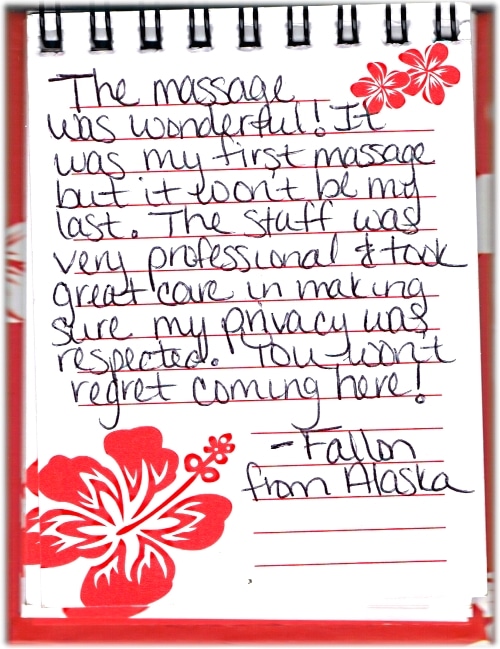 The massage
was wonderful! It
was my first massage
but it won't be my
last. The staff was
very professional & took
great care in making
sure my privacy was
respected. You won't
regret coming here!
- Fallon
from Alaska